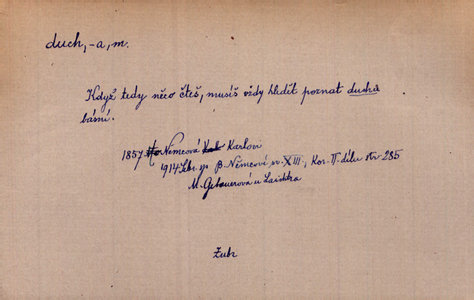 duch, -a, m.
Když tedy něco čteš, musíš vždy hledět poznat ducha
básní.
1857 Němcová Karlovi
1914 Sebr. sp. B. Němcové sv. XIII, Kor. II. dílu str. 285
M. Gebauerová u Laichtra
Zubr